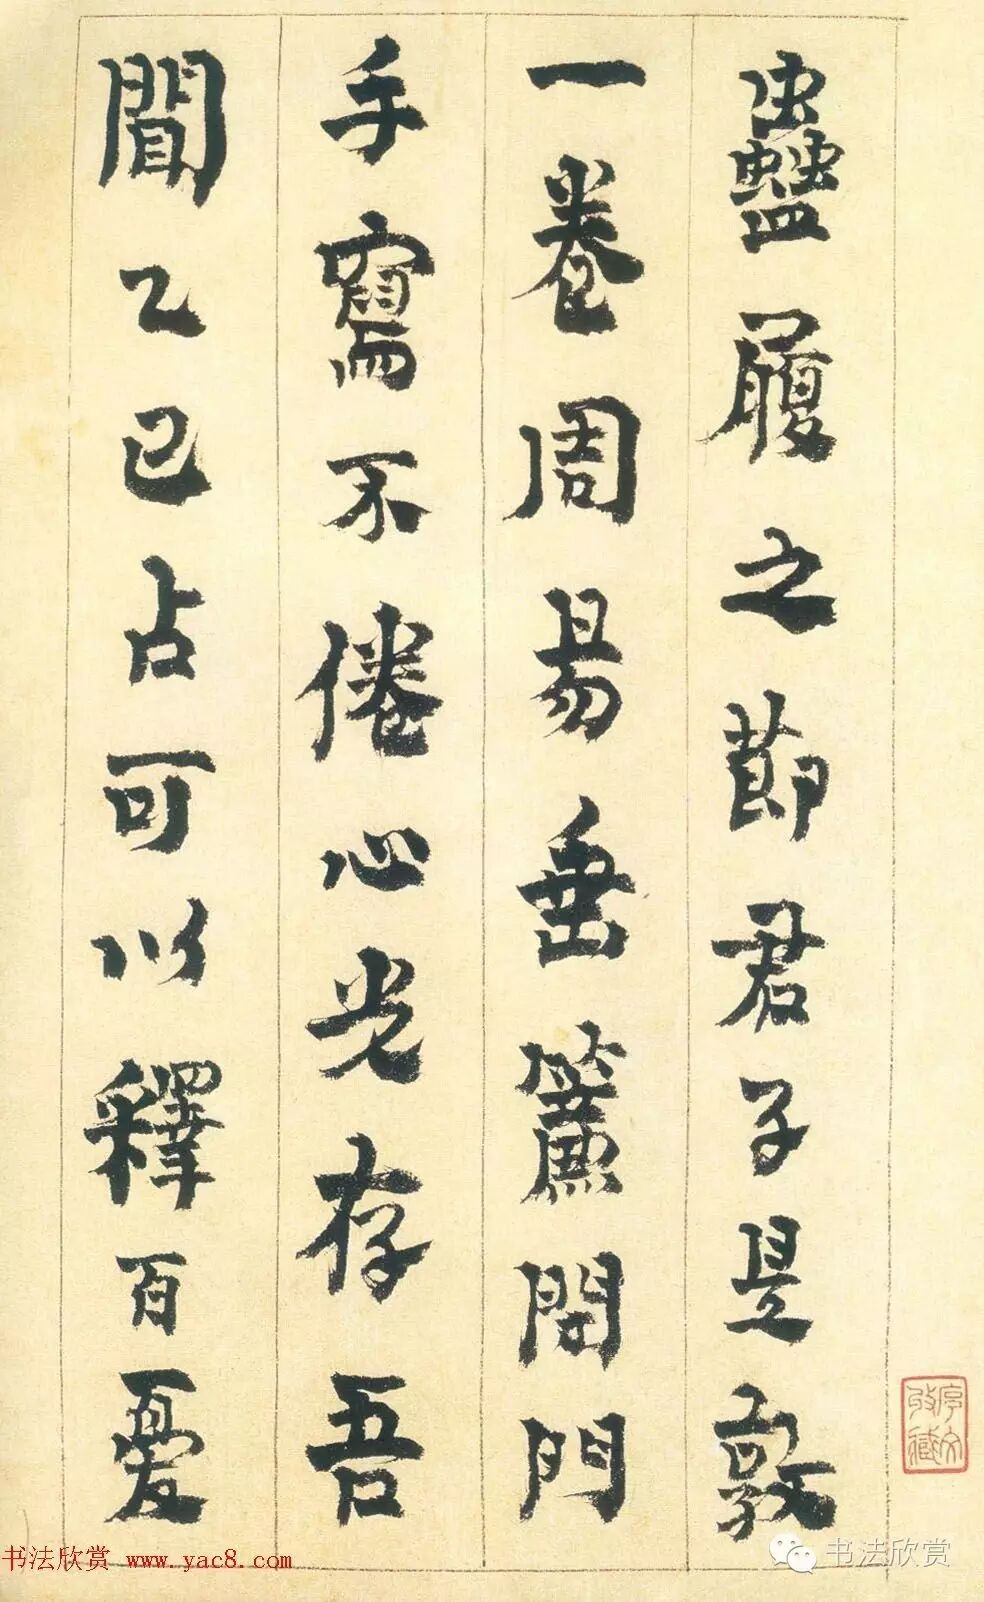 蠱履之節君子是敦
一卷周易垂簾閉門
手寫不倦心光存吾
聞乙巳占可以釋百憂
书法欣赏 www.yac8.com
书法欣赏